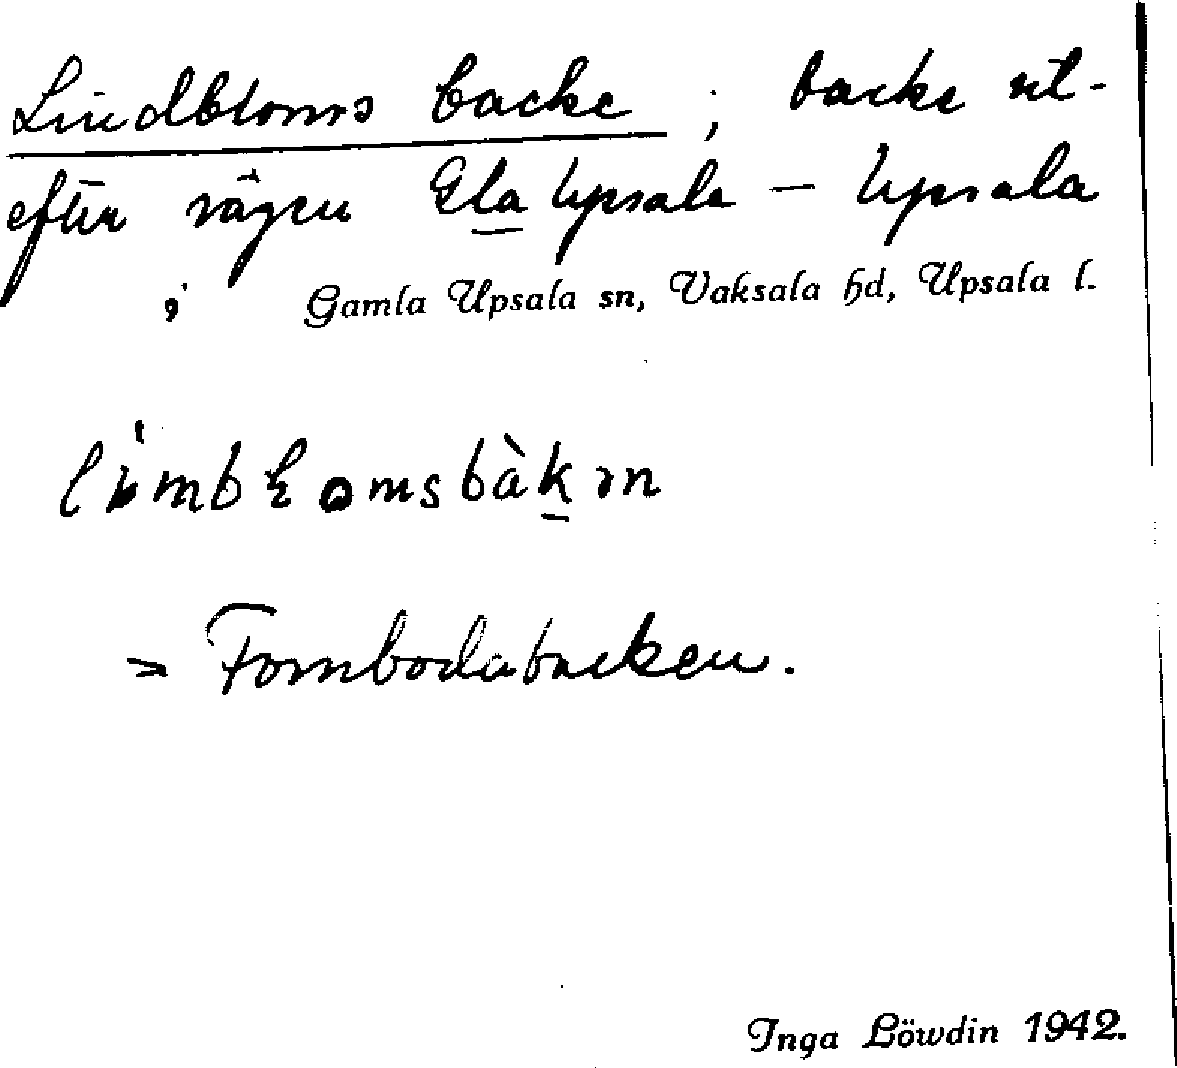 Lindbloms backe ; backe ut-
efter vägen Gla Upsala – Upsala
Gamla Upsala sn, Vaksala hd, Upsala l.
= Fornbodabacken.
Inga Löwdin 1942.